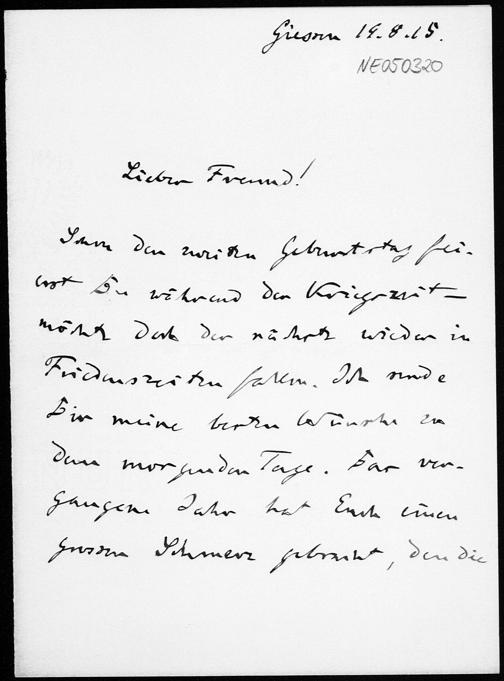 Giessen 19.8.15.
NE050320
Lieber Freund!
Schon den zweiten Geburtstag fei-
erst Du während der Kriegszeit –
möchte doch der nächste wieder in
Friedenszeiten fallen. Ich sende
Dir meine besten Wünsche zu
dem morgenden Tage. Das ver-
gangene Jahr hat Euch einen
grossen Schmerz gebracht, den die